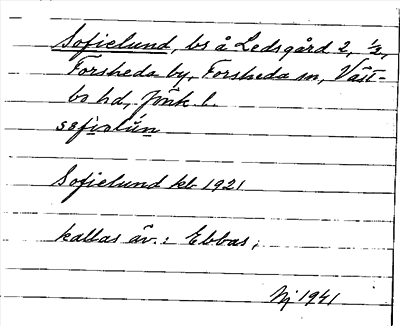 Sofielund, bs å Ledsgård 2, 1/2,
Forsheda by, Forsheda sn, Väst-
bo hd, Jönk l.
sofiolún
Sofielund kb 1921
kallas äv.: Ebbas,
Nj 1941